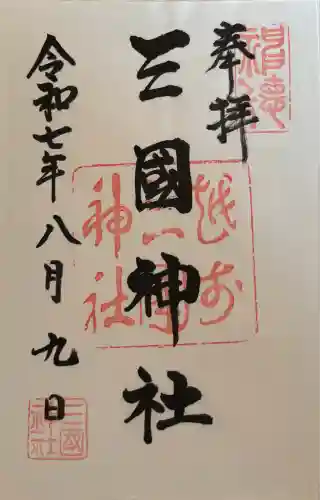 奉拝
三國神社
令和七年八月九日
越前
三國
神社
三國
神社